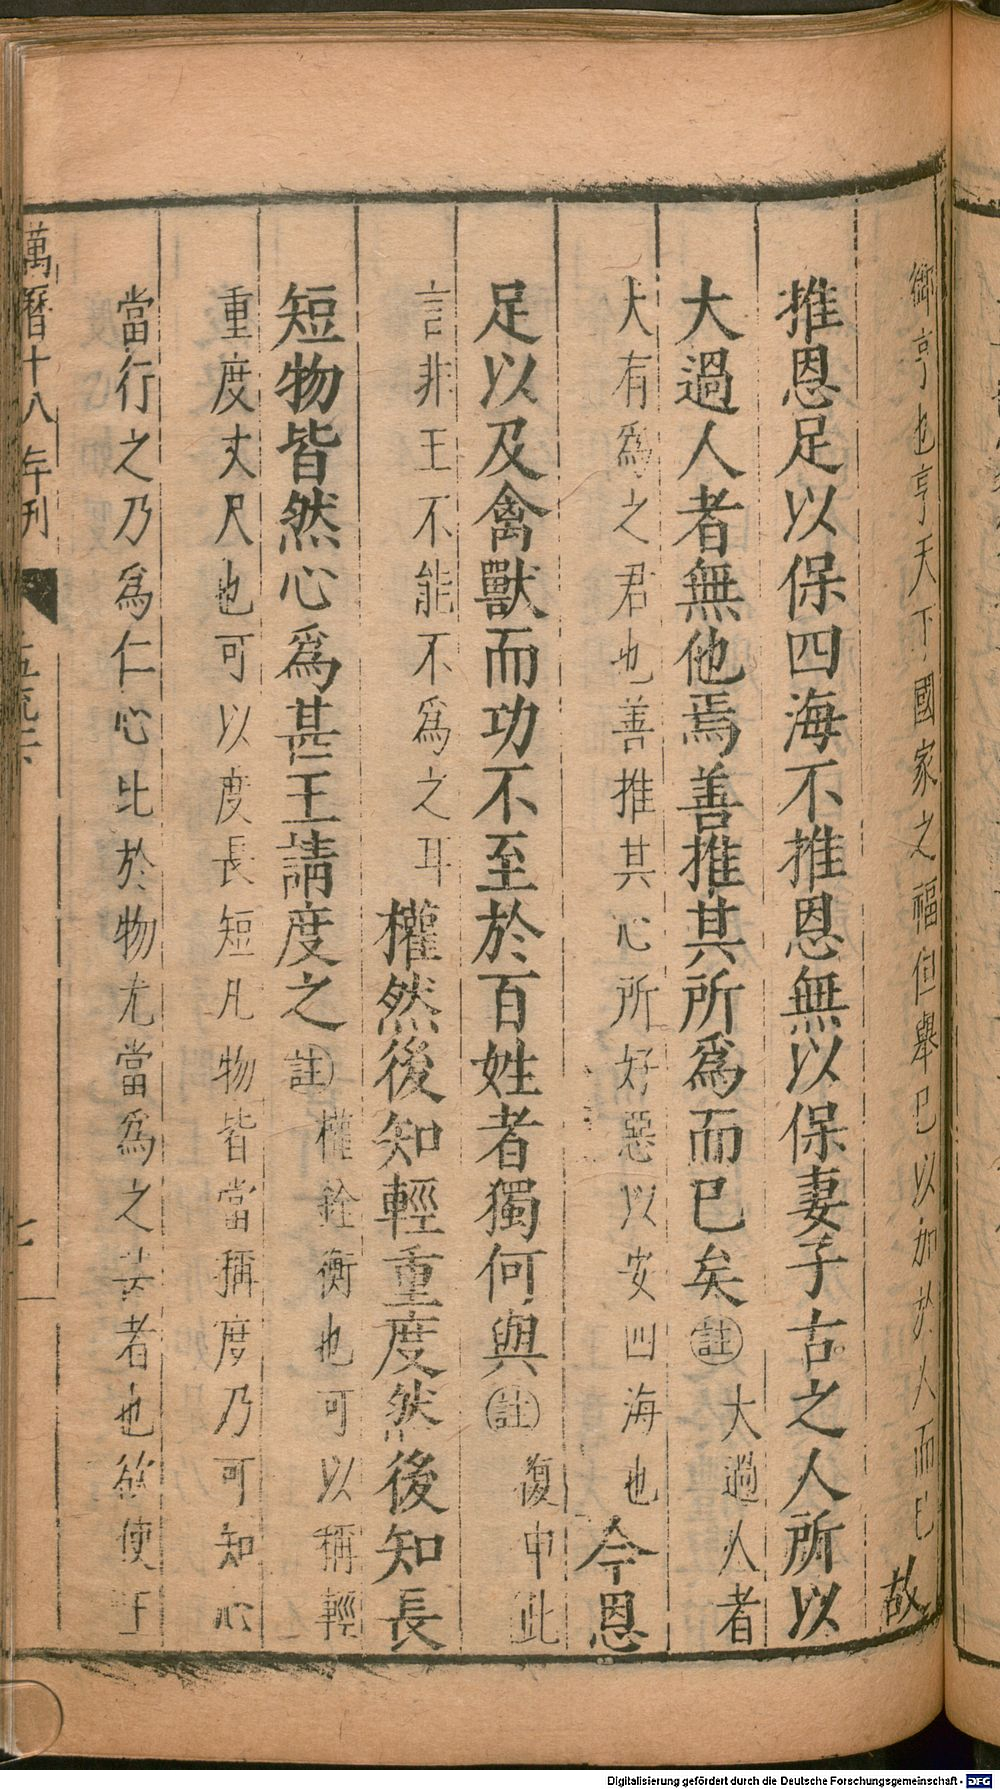 御亨也亨天下國家之福但舉巳以加於人而巳故
推恩足以保四海不推恩無以保妻子古之人所以
大過人者無他焉善推其所爲而巳矣註大過人者
大有爲之君也善推其心所好惡以安四海也今恩
足以及禽獸而功不至於百姓者獨何與註復申此
言非王不能不爲之耳權然後知輕重度然後知長
短物皆然心爲甚王請度之註權銓衡也可以稱輕
重度丈尺也可以度長短凡物皆當稱度乃可知心
當行之乃爲仁心比於物尤當爲之甚者也欲使王
萬曆十八年刊
七
Digitalisierung gefördert durch die Deutsche Forschungsgemeinschaft - DFG